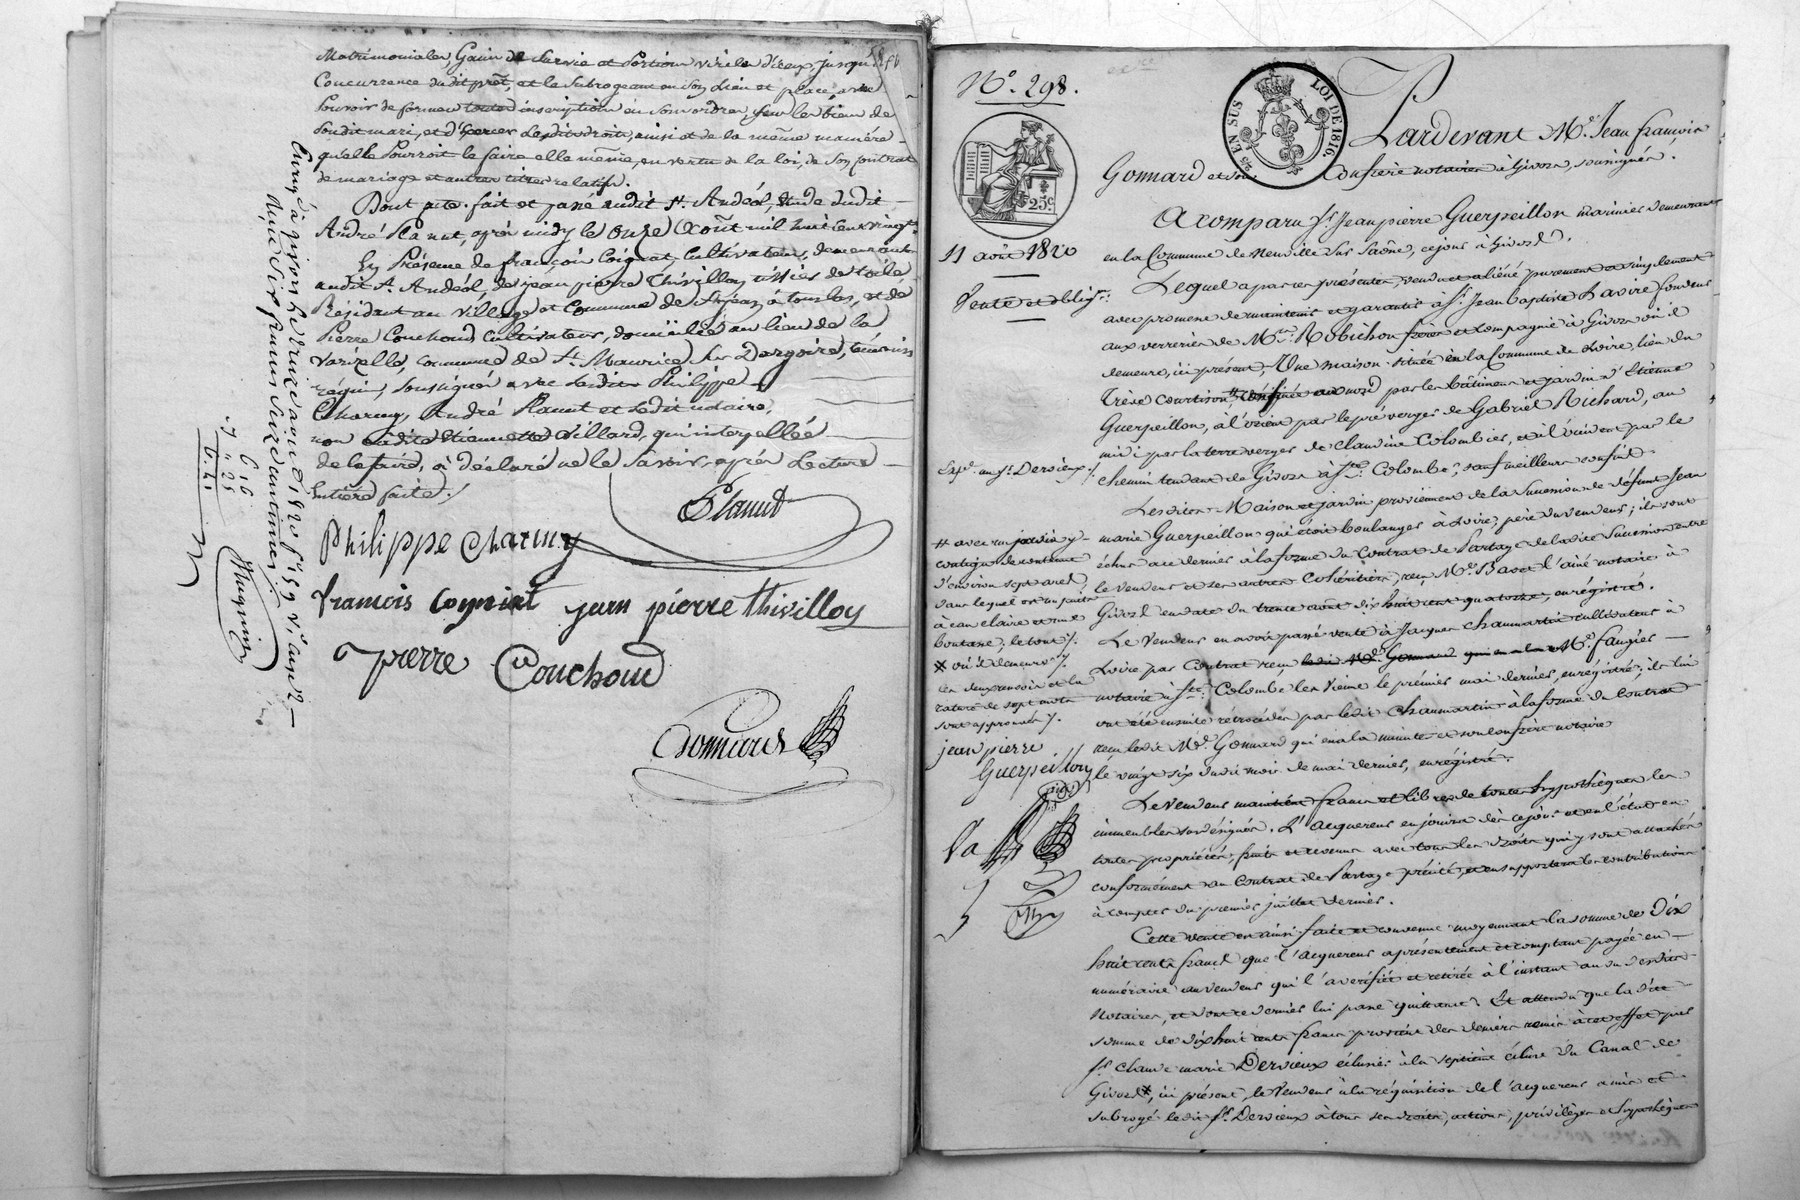 Matrimoniales, Gain de Survie et Portion virile d'iceux, jusqu'à
Concurrence dudit prêt, et le Subrogeant en Son Lieu et place, avec
Pouvoir de former toutes inscriptions en Son ordre, Sur les biens de
Sondit mari, et d'Exercer Lesdits droits, ainsi et de la même manière
qu'elle Pourroit le faire elle même, en vertu de la loi, de Son Contrat
de mariage et autres titres relatifs.
Dont acte. fait et passé audit St. Andéol, Etude dudit
André Planut, après midy le Onze Août mil huit cent vingt.
En Présence de françois Coignet, Cultivateur, demeurant
audit St. Andéol, de jean pierre Thivilloy tissier de toile
Résidant au Village et Commune de St. jean à touslas, et de
Pierre Couchoud Cultivateur, domicilié au lieu de la
Varizelle, Commune de St. Maurice Sur Dargoire, témoins
requis, Soussignés avec Ledit Philippe
Charmy, André Planut et Ledit notaire,
non Ladite Etiennette Villard, qui interpellée
de le faire, a déclaré ne le Savoir, après Lecture
Entière faite ./.
Planut
Philippe Charmy
francois Coynint jean pierre thivilloy
pierre Couchoud
Donnard
6. 41
No. 298.
EN SUS
LOI DE 1816.
25 c
11 août 1820
Vente et oblig.on
Pardevant Me. Jean françois
Gonnard et son Confrère notaires à Givors, soussignés.
A comparu Sr. Jean pierre Guerpeillon marinier demeurant
en la Commune de Neuville sur Saône, cejour à Givors.
Lequel a par ces présentes, vendu et aliéné purement et simplement
avec promesse de maintenir et garantir à Sr. Jean baptiste Lavire fondeur
aux verreries de Mrs. Robichon frères et Compagnie à Givors où il
demeure, ici présent, Une maison située en la Commune de Loire, lieu du
Trève Courtison # confinée au nord par les bâtiments et jardin d'Etienne
Guerpeillon, à l'orient par le pré verger de Gabriel Richard, au
midi par la terre verger de claudine Colombier, et à l'occident par le
chemin tendant de Givors à Ste. Colombe, sauf meilleurs confins.
Exp. au Sr. Dervieux ./.
Lesdites Maison et jardin proviennent de la Succession de défunt Jean
marie Guerpeillon qui étoit boulanger à Loire, père du vendeur; ils sont
échus au dernier à la forme du Contrat de Partage de ladite Succession entre
le vendeur et ses autres Cohéritiers, reçu Me. Basset l'ainé notaire à
Givors en date du trente août dix huit cent quatorze, enrégistré.
Le Vendeur en avoit passé vente à Jacques Chaumartin cultivateur à
Loire par Contrat reçu ledit Me. Gonnard qui en a la Me. Faugier
notaire à Ste. Colombe les Vienne le premier mai dernier, enrégistré; ils lui
ont été ensuite rétrocédés par ledit Chaumartin à la forme du Contrat
reçu ledit Me. Gonnard qui en a la minute et son confrère notaires
le vingt six dudit mois de mai dernier, enrégistré.
# avec un jardin y
contigu de contenue
d'environ sept ares,
dans lequel est un puits
à eau claire et une
boutasse; le tout ./.
* où il demeure ./.
les deux renvois et la
rature de sept mots
sont approuvés ./.
jean pierre
Guerpeillon
Le Vendeur maintient francs et libres de toutes hypothèques les
immeubles susdésignés. L'acquereur en jouira dès ce jour et en l'état en
toutes propriétés, fruits et revenus avec tous les droits qui y sont attachés
conformément au Contrat de Partage précité, et en supportera les contributions
à compter du premier juillet dernier.
Cette vente est ainsi faite et convenue moyennant la somme de Dix
huit cents francs que l'acquereur a présentement et comptant payée en
numéraire au vendeur qui l'a vérifiée et retirée à l'instant au vu desdits
Notaires, et dont ce dernier lui passe quittance. Et attendu que ladite
somme de dix huit cents francs provient des deniers remis à cet effet par
Sr. Claude marie Dervieux éclusier à la septième écluse du Canal de
Givors *, ici présent, le Vendeur à la réquisition de l'acquereur a mis et
subrogé ledit Sr. Dervieux à tous ses droits, actions, privilèges et hypothèques